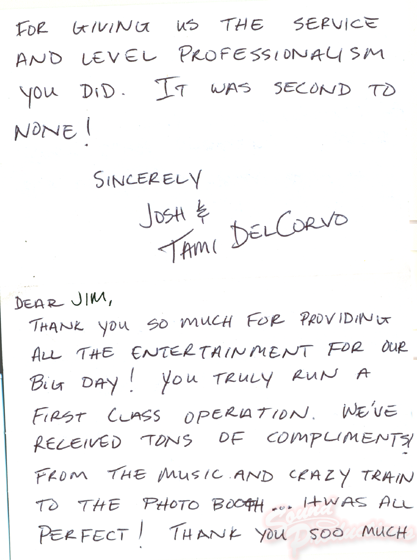 FOR GIVING US THE SERVICE
AND LEVEL PROFESSIONALISM
YOU DID. IT WAS SECOND TO
NONE!
SINCERELY
JOSH &
TAMI DELCORVO
DEAR JIM,
THANK YOU SO MUCH FOR PROVIDING
ALL THE ENTERTAINMENT FOR OUR
BIG DAY! YOU TRULY RUN A
FIRST CLASS OPERATION. WE'VE
RECEIVED TONS OF COMPLIMENTS!
FROM THE MUSIC AND CRAZY TRAIN
TO THE PHOTO BOOTH... IT WAS ALL
PERFECT! THANK YOU SOO MUCH